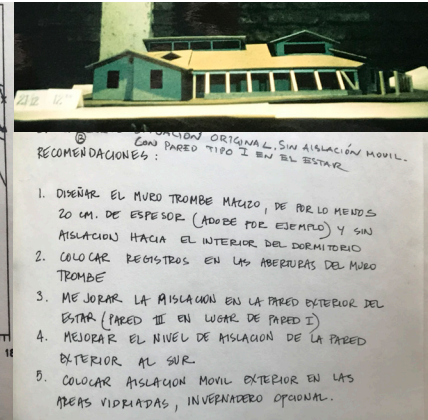 21/12 12
B SITUACIÓN ORIGINAL, SIN AISLACIÓN MOVIL.
CON PARED TIPO I EN EL ESTAR
RECOMENDACIONES:
1. DISEÑAR EL MURO TROMBE MACIZO, DE POR LO MENOS
20 CM. DE ESPESOR (ADOBE POR EJEMPLO) Y SIN
AISLACION HACIA EL INTERIOR DEL DORMITORIO
2. COLOCAR REGISTROS EN LAS ABERTURAS DEL MURO
TROMBE
3. MEJORAR LA AISLACION EN LA PARED EXTERIOR DEL
ESTAR (PARED III EN LUGAR DE PARED I)
4. MEJORAR EL NIVEL DE AISLACION DE LA PARED
EXTERIOR AL SUR.
5. COLOCAR AISLACION MOVIL EXTERIOR EN LAS
AREAS VIDRIADAS, INVERNADERO OPCIONAL.
18